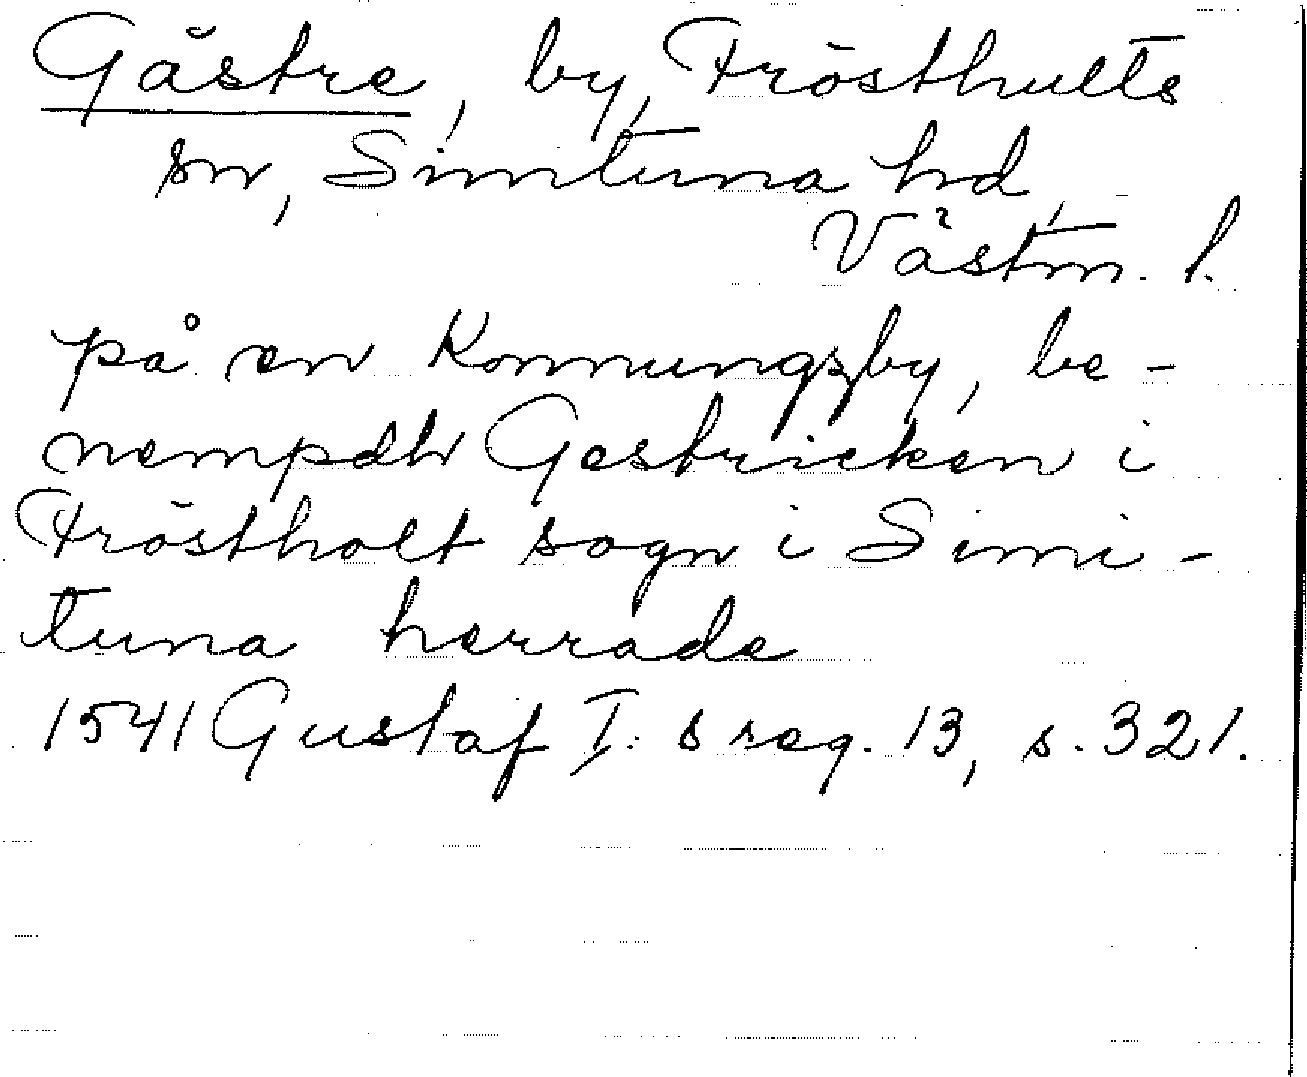 Gästre, by, Frösthults
sn, Simtuna hd,
Västm. l.
på en Konnungzby, be-
nempdh Gestricken i
Fröstholt sogn i Simi-
tuna herrade
1541 Gustaf I:s reg. 13, s. 321.